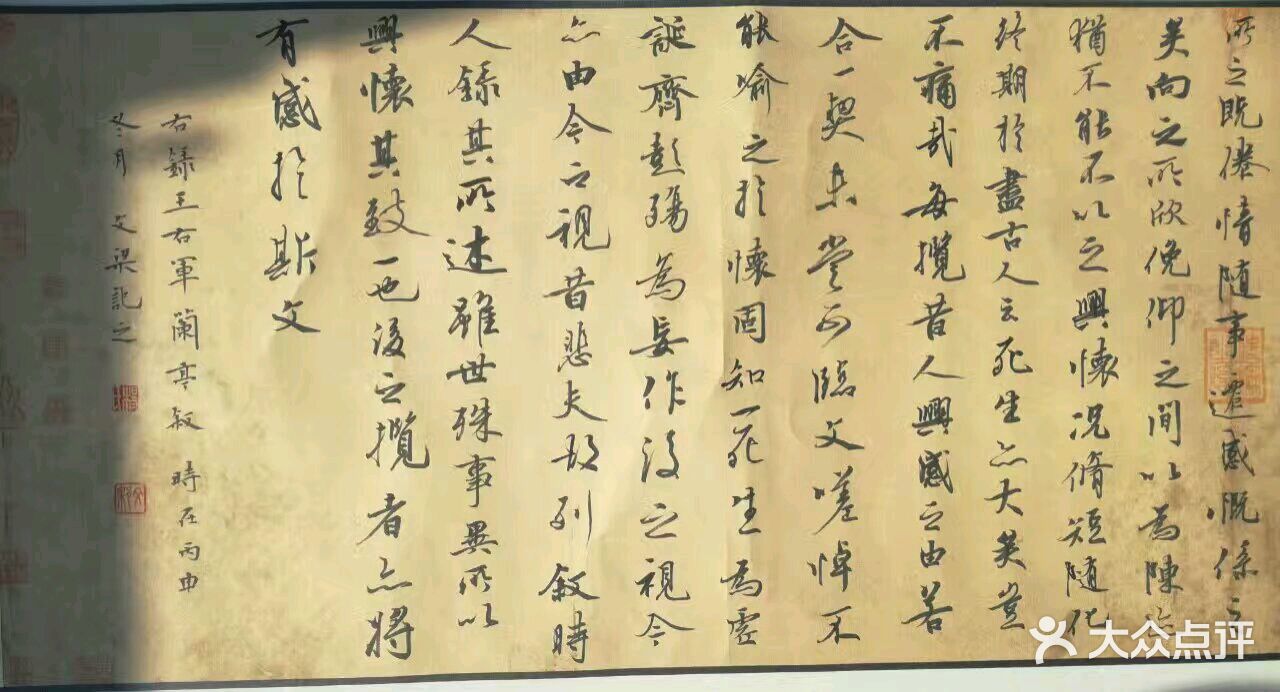 所之既倦情隨事遷感慨係之
矣向之所欣俛仰之間以為陳迹
猶不能不以之興懷況脩短隨化
終期於盡古人云死生亦大矣豈
不痛哉每攬昔人興感之由若
合一契未嘗不臨文嗟悼不
能喻之於懷固知一死生為虛
誕齊彭殤為妄作後之視今
亦由今之視昔悲夫故列敘時
人錄其所述雖世殊事異所以
興懷其致一也後之攬者亦將
有感於斯文
右錄王右軍蘭亭敘 時在丙申
冬月 文梁記之
大众点评